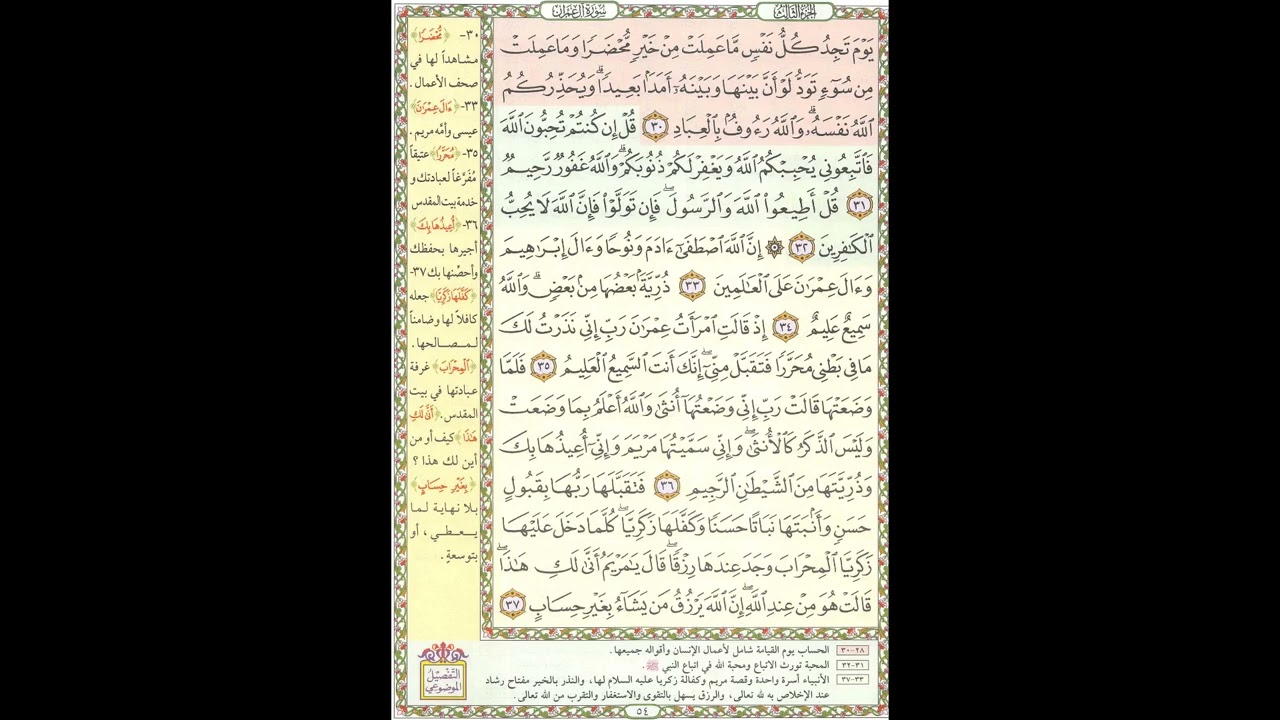 الجزء الثالث
سورة آل عمران
يَوۡمَ تَجِدُ كُلُّ نَفۡسٖ مَّا عَمِلَتۡ مِنۡ خَيۡرٖ مُّحۡضَرٗا وَمَا عَمِلَتۡ
مِن سُوٓءٖ تَوَدُّ لَوۡ أَنَّ بَيۡنَهَا وَبَيۡنَهُۥٓ أَمَدَۢا بَعِيدٗاۗ وَيُحَذِّرُكُمُ
ٱللَّهُ نَفۡسَهُۥۗ وَٱللَّهُ رَءُوفُۢ بِٱلۡعِبَادِ ٣٠ قُلۡ إِن كُنتُمۡ تُحِبُّونَ ٱللَّهَ
فَٱتَّبِعُونِي يُحۡبِبۡكُمُ ٱللَّهُ وَيَغۡفِرۡ لَكُمۡ ذُنُوبَكُمۡۗ وَٱللَّهُ غَفُورٞ رَّحِيمٞ
٣١ قُلۡ أَطِيعُواْ ٱللَّهَ وَٱلرَّسُولَۖ فَإِن تَوَلَّوۡاْ فَإِنَّ ٱللَّهَ لَا يُحِبُّ
ٱلۡكَٰفِرِينَ ٣٢ ۞ إِنَّ ٱللَّهَ ٱصۡطَفَىٰٓ ءَادَمَ وَنُوحٗا وَءَالَ إِبۡرَٰهِيمَ
وَءَالَ عِمۡرَٰنَ عَلَى ٱلۡعَٰلَمِينَ ٣٣ ذُرِّيَّةَۢ بَعۡضُهَا مِنۢ بَعۡضٖۗ وَٱللَّهُ
سَمِيعٌ عَلِيمٌ ٣٤ إِذۡ قَالَتِ ٱمۡرَأَتُ عِمۡرَٰنَ رَبِّ إِنِّي نَذَرۡتُ لَكَ
مَا فِي بَطۡنِي مُحَرَّرٗا فَتَقَبَّلۡ مِنِّيٓۖ إِنَّكَ أَنتَ ٱلسَّمِيعُ ٱلۡعَلِيمُ ٣٥ فَلَمَّا
وَضَعَتۡهَا قَالَتۡ رَبِّ إِنِّي وَضَعۡتُهَآ أُنثَىٰ وَٱللَّهُ أَعۡلَمُ بِمَا وَضَعَتۡ
وَلَيۡسَ ٱلذَّكَرُ كَٱلۡأُنثَىٰۖ وَإِنِّي سَمَّيۡتُهَا مَرۡيَمَ وَإِنِّيٓ أُعِيذُهَا بِكَ
وَذُرِّيَّتَهَا مِنَ ٱلشَّيۡطَٰنِ ٱلرَّجِيمِ ٣٦ فَتَقَبَّلَهَا رَبُّهَا بِقَبُولٍ
حَسَنٖ وَأَنۢبَتَهَا نَبَاتًا حَسَنٗا وَكَفَّلَهَا زَكَرِيَّاۖ كُلَّمَا دَخَلَ عَلَيۡهَا
زَكَرِيَّا ٱلۡمِحۡرَابَ وَجَدَ عِندَهَا رِزۡقٗاۖ قَالَ يَٰمَرۡيَمُ أَنَّىٰ لَكِ هَٰذَاۖ
قَالَتۡ هُوَ مِنۡ عِندِ ٱللَّهِۖ إِنَّ ٱللَّهَ يَرۡزُقُ مَن يَشَآءُ بِغَيۡرِ حِسَابٍ ٣٧
٣٠- ﴿مُّحۡضَرٗا﴾
مشاهداً لها في
صحف الأعمال .
٣٣- ﴿ءَالَ عِمۡرَٰنَ﴾
عيسى وأمّه مريم .
٣٥- ﴿مُحَرَّرٗا﴾ عتيقاً
مُفَرَّغاً لعبادتك و
خدمة بيت المقدس
٣٦- ﴿أُعِيذُهَا بِكَ﴾
أجيرها بحفظك
وأحصّنها بك ٣٧-
﴿كَفَّلَهَا زَكَرِيَّا﴾ جعله
كافلاً لها وضامناً
لمصالحها .
﴿ٱلۡمِحۡرَابَ﴾ غرفة
عبادتها في بيت
المقدس . ﴿أَنَّىٰ لَكِ
هَٰذَا﴾ كيف أو من
أين لك هذا ؟
﴿بِغَيۡرِ حِسَابٍ﴾
بلا نهاية لما
يعطي ، أو
بتوسعةٍ .
٢٨-٣٠ الحساب يوم القيامة شامل لأعمال الإنسان وأقواله جميعها.
٣١-٣٢ المحبة تورث الاتباع ومحبة الله في اتباع النبي ﷺ.
٣٣-٣٧ الأنبياء أسرة واحدة وقصة مريم وكفالة زكريا عليه السلام لها، والنذر بالخير مفتاح رشاد
عند الإخلاص به لله تعالى، والرزق يسهل بالتقوى والاستغفار والتقرب من الله تعالى.
التفصيل
الموضوعي
٥٤